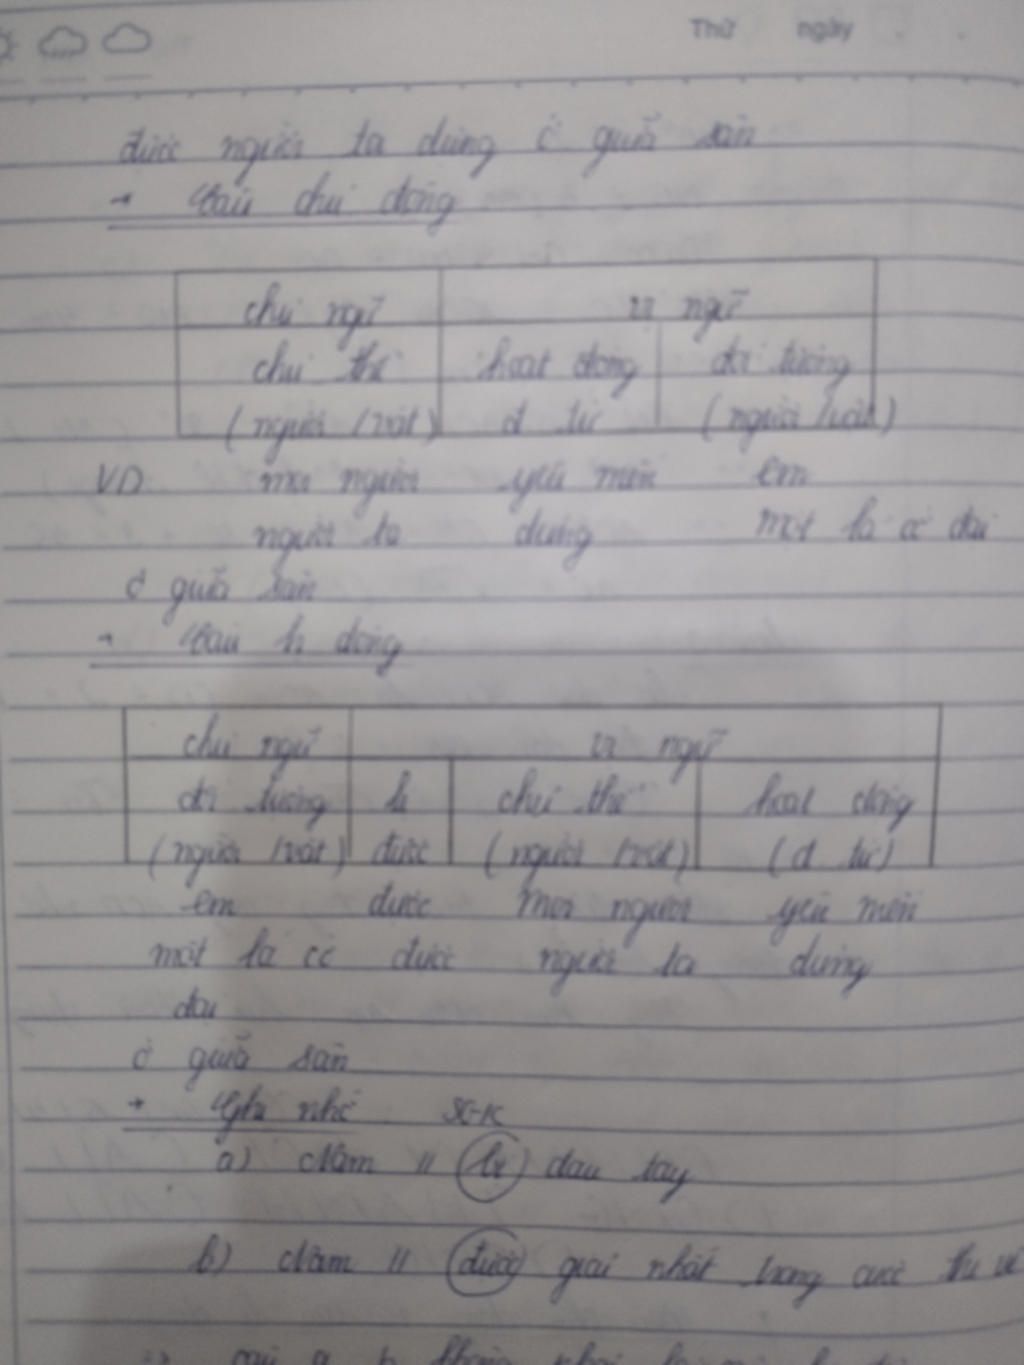 Thứ ngày
được người ta dựng ở giữa sân
→ Câu chủ động
chủ ngữ vị ngữ
chủ thể hoạt động đối tượng
(người / vật) đ từ (người / vật)
VD mọi người yêu mến em
người ta dựng một lá cờ đại
ở giữa sân
→ Câu bị động
chủ ngữ vị ngữ
đối tượng bị chủ thể hoạt động
(người / vật) được (người / vật) (đ từ)
em được mọi người yêu mến
một lá cờ được người ta dựng
đại
ở giữa sân
+ Ghi nhớ SGK
a) Nam // bị đau tay
b) Nam // được giải nhất trong cuộc thi